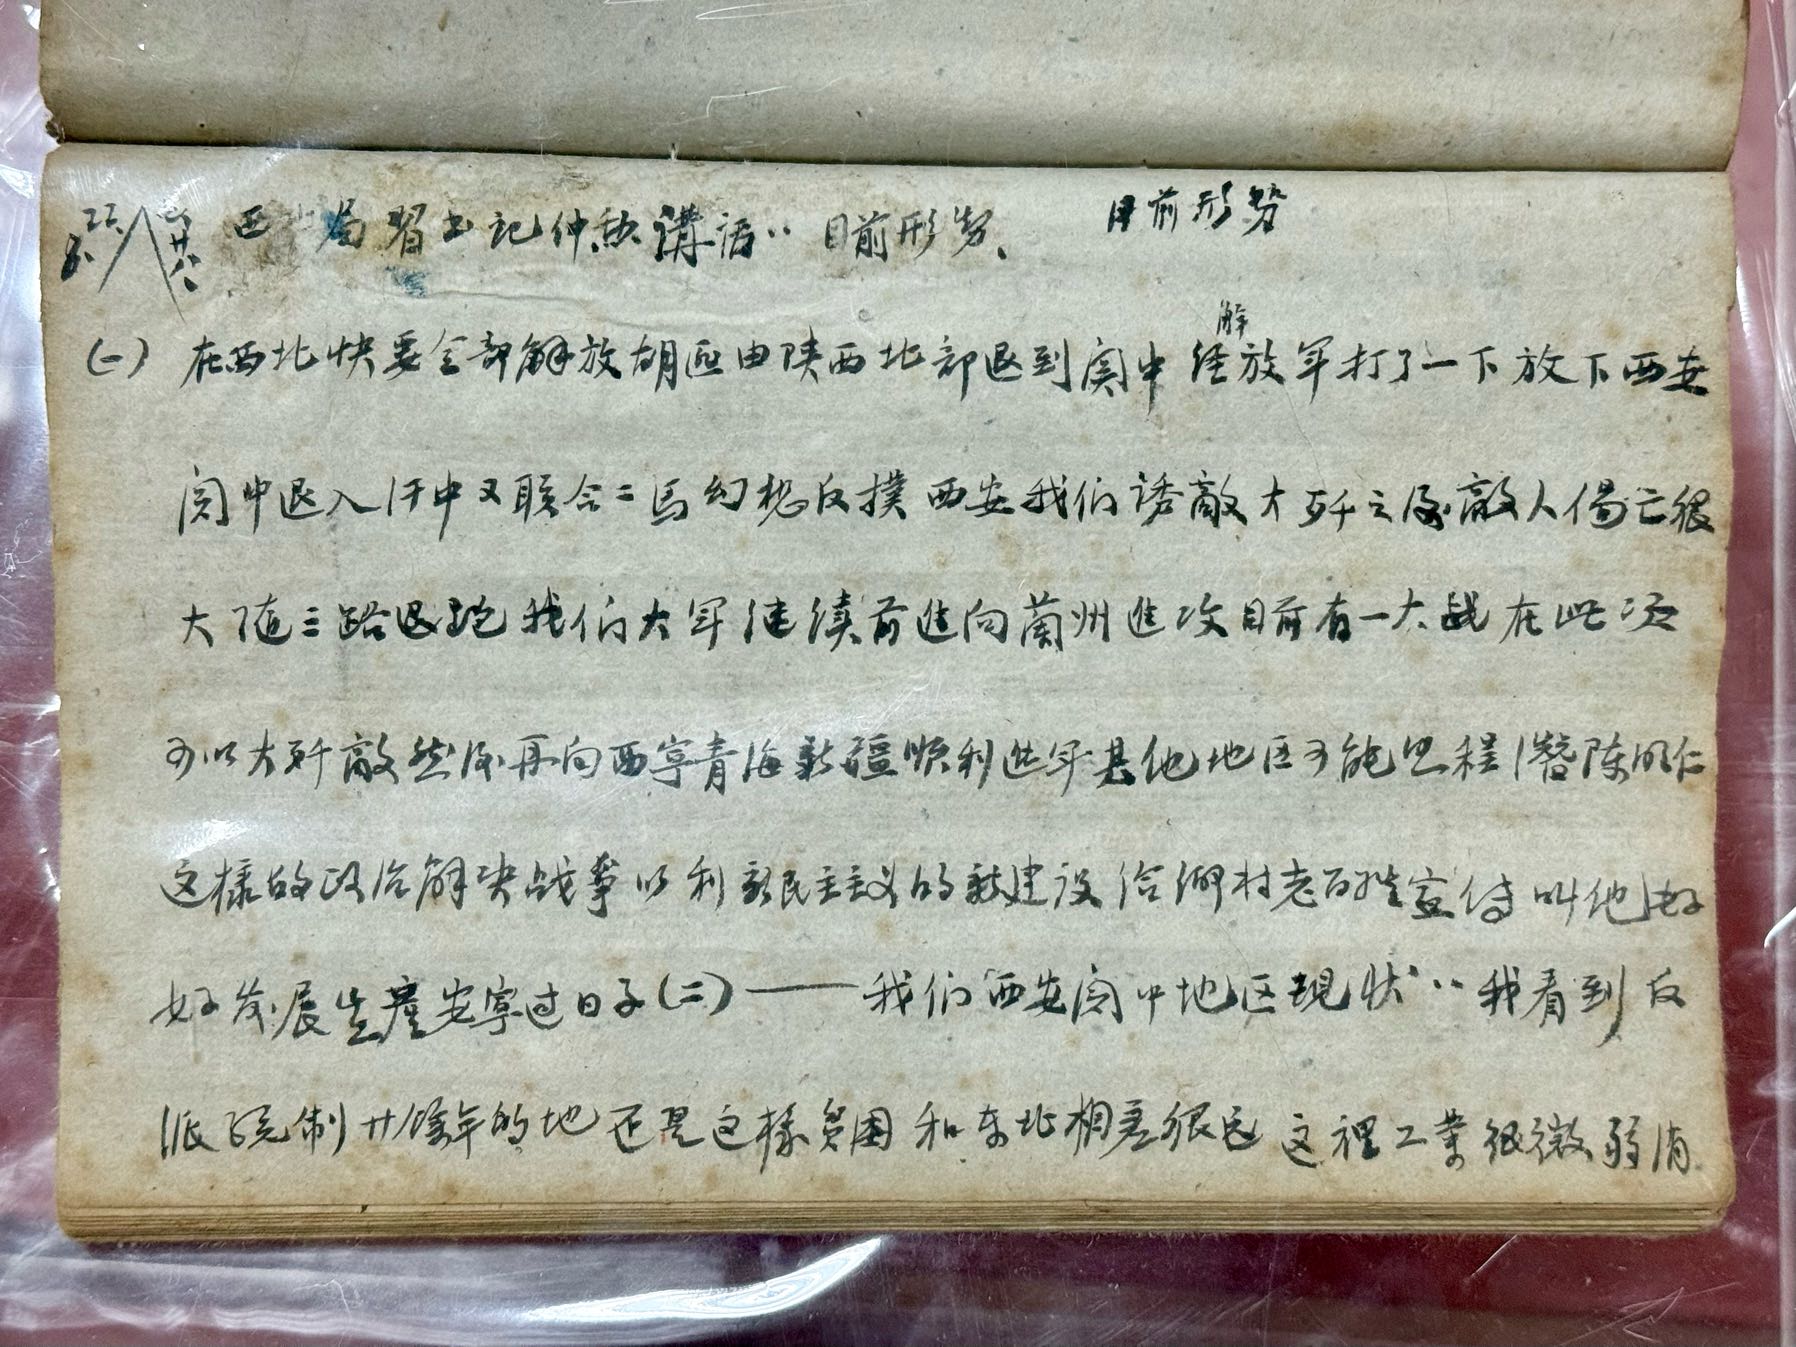 西北局習书记仲勳講话:目前形势、 目前形势
(一)在西北快要全部解放胡匪由陕西北部退到関中经解放军打了一下放下西安
関中退入汗中又联合二馬幻想反撲西安我们誘敵大歼之后敵人傷亡很
大随三路退跑我们大军继续前進向蘭州進攻目前有一大战在此次
可以大歼敵然后再向西宁青海新疆顺利進军其他地区可能出程潜陈明仁
这樣的政治解决战争以利新民主主义的新建设给鄉村老百姓宣传叫他们好
好发展生產安寧过日子(二)——我们西安関中地区現状:我看到反
派统制廿馀年的地还是这樣貧困和东北相差很远这裡工業很微弱消